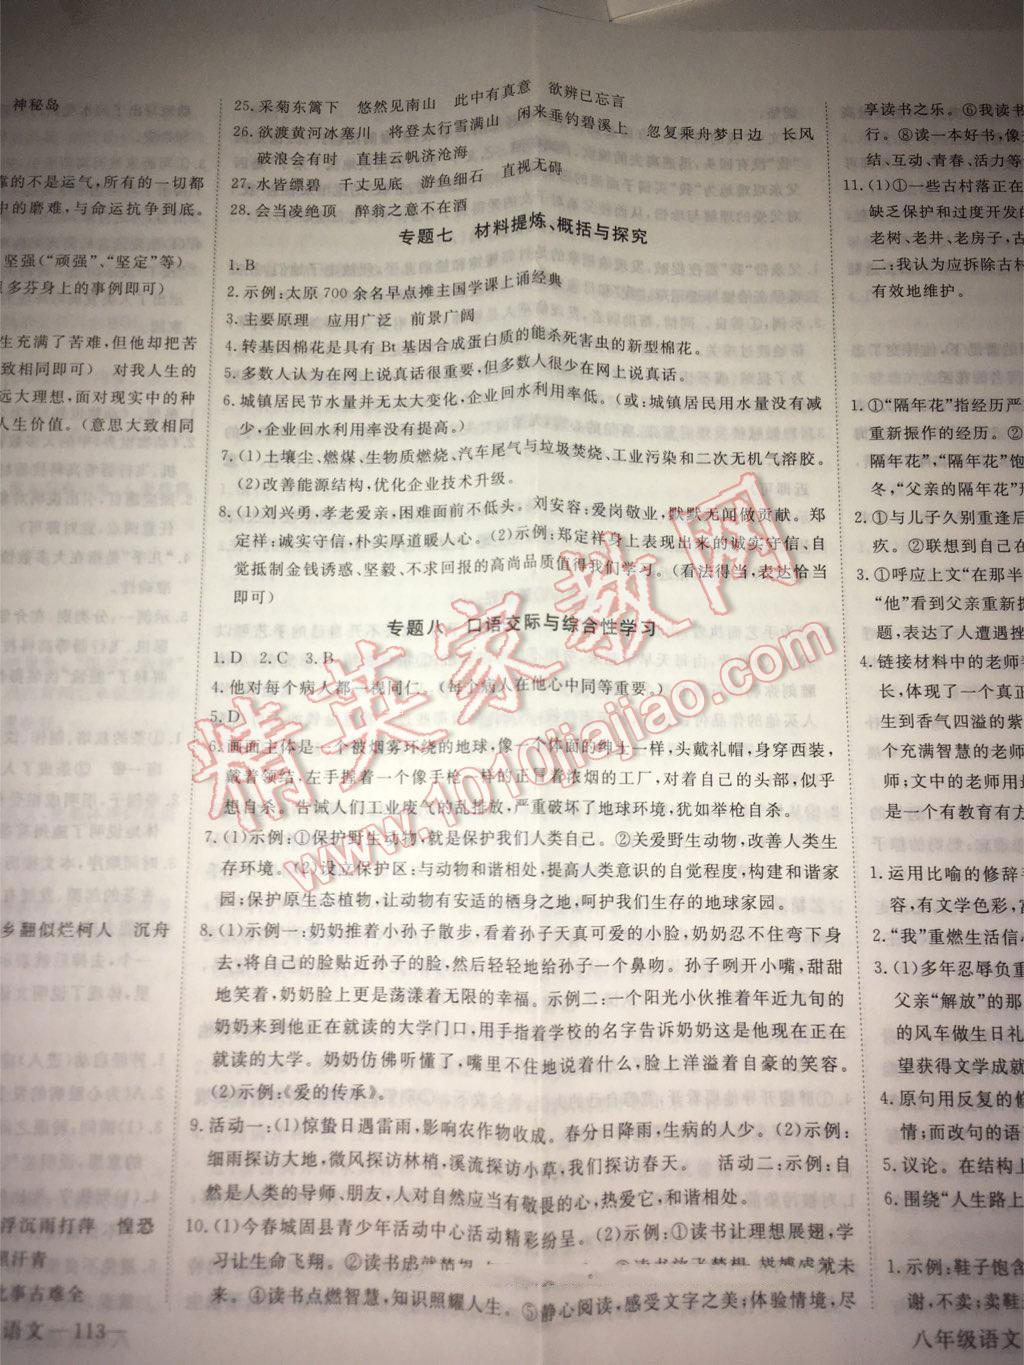 神秘岛
靠的不是运气，所有的一切都
中的磨难，与命运抗争到底。
坚强（“顽强”、“坚定”等）
贝多芬身上的事例即可）
生充满了苦难，但他却把苦
致相同即可） 对我人生的
远大理想，面对现实中的种
人生价值。（意思大致相同
乡翻似烂柯人 沉舟
浮沉雨打萍 惶恐
照汗青
此事古难全
语文—113—
25.采菊东篱下 悠然见南山 此中有真意 欲辨已忘言
26.欲渡黄河冰塞川 将登太行雪满山 闲来垂钓碧溪上 忽复乘舟梦日边 长风
破浪会有时 直挂云帆济沧海
27.水皆缥碧 千丈见底 游鱼细石 直视无碍
28.会当凌绝顶 醉翁之意不在酒
专题七 材料提炼、概括与探究
1.B
2.示例：太原700余名早点摊主国学课上诵经典
3.主要原理 应用广泛 前景广阔
4.转基因棉花是具有Bt基因合成蛋白质的能杀死害虫的新型棉花。
5.多数人认为在网上说真话很重要，但多数人很少在网上说真话。
6.城镇居民节水量并无太大变化，企业回水利用率低。（或：城镇居民用水量没有减
少，企业回水利用率没有提高。）
7.(1)土壤尘、燃煤、生物质燃烧、汽车尾气与垃圾焚烧、工业污染和二次无机气溶胶。
(2)改善能源结构，优化企业技术升级。
8.(1)刘兴勇，孝老爱亲，困难面前不低头。刘安容：爱岗敬业，默默无闻做贡献。郑
定祥：诚实守信，朴实厚道暖人心。(2)示例：郑定祥身上表现出来的诚实守信、自
觉抵制金钱诱惑、坚毅、不求回报的高尚品质值得我们学习。（看法得当，表达恰当
即可）
专题八 口语交际与综合性学习
1.D 2.C 3.B
4.他对每个病人都一视同仁。（每个病人在他心中同等重要。）
5.D
6.画面主体是一个被烟雾环绕的地球，像一个体面的绅士一样，头戴礼帽，身穿西装，
戴着领结，左手握着一个像手枪一样的正冒着浓烟的工厂，对着自己的头部，似乎
想自杀。告诫人们工业废气的乱排放，严重破坏了地球环境，犹如举枪自杀。
7.(1)示例：①保护野生动物，就是保护我们人类自己。②关爱野生动物，改善人类生
存环境。(2)设立保护区：与动物和谐相处，提高人类意识的自觉程度，构建和谐家
园；保护原生态植物，让动物有安适的栖身之地，呵护我们生存的地球家园。
8.(1)示例一：奶奶推着小孙子散步，看着孙子天真可爱的小脸，奶奶忍不住弯下身
去，将自己的脸贴近孙子的脸，然后轻轻地给孙子一个鼻吻。孙子咧开小嘴，甜甜
地笑着，奶奶脸上更是荡漾着无限的幸福。示例二：一个阳光小伙推着年近九旬的
奶奶来到他正在就读的大学门口，用手指着学校的名字告诉奶奶这是他现在正在
就读的大学。奶奶仿佛听懂了，嘴里不住地说着什么，脸上洋溢着自豪的笑容。
(2)示例：《爱的传承》。
9.活动一：(1)惊蛰日遇雷雨，影响农作物收成。春分日降雨，生病的人少。(2)示例：
细雨探访大地，微风探访林梢，溪流探访小草，我们探访春天。 活动二：示例：自
然是人类的导师、朋友，人对自然应当有敬畏的心，热爱它，和谐相处。
10.(1)今春城固县青少年活动中心活动精彩纷呈。(2)示例：①读书让理想展翅，学
习让生命飞翔。②读书成就梦想
来。④读书点燃智慧，知识照耀人生。⑤静心阅读，感受文字之美；体验情境，尽
享读书之乐。⑥我读书
行。⑧读一本好书，像
结、互动、青春、活力等
11.(1)①一些古村落正在
缺乏保护和过度开发的
老树、老井、老房子，具
二：我认为应拆除古村
有效地维护。
1.①“隔年花”指经历严
重新振作的经历。②
隔年花”，“隔年花”饱
冬，“父亲的隔年花”形
2.①与儿子久别重逢后
疚。②联想到自己在
3.①呼应上文“在那半
“他”看到父亲重新振
题，表达了人遭遇挫
4.链接材料中的老师
长，体现了一个真正
生到香气四溢的大
个充满智慧的老师
师；文中的老师用
是一个有教育有方
1.运用比喻的修辞
容，有文学色彩，富
2.“我”重燃生活信
3.(1)多年忍辱负重
父亲“解放”的那
的风车做生日礼
望获得文学成就
4.原句用反复的修
情；而改句的语
5.议论。在结构上
6.围绕“人生路上
1.示例：鞋子饱含
谢，不卖；卖鞋
八年级语文
精英家教网
www.1010jiajiao.com